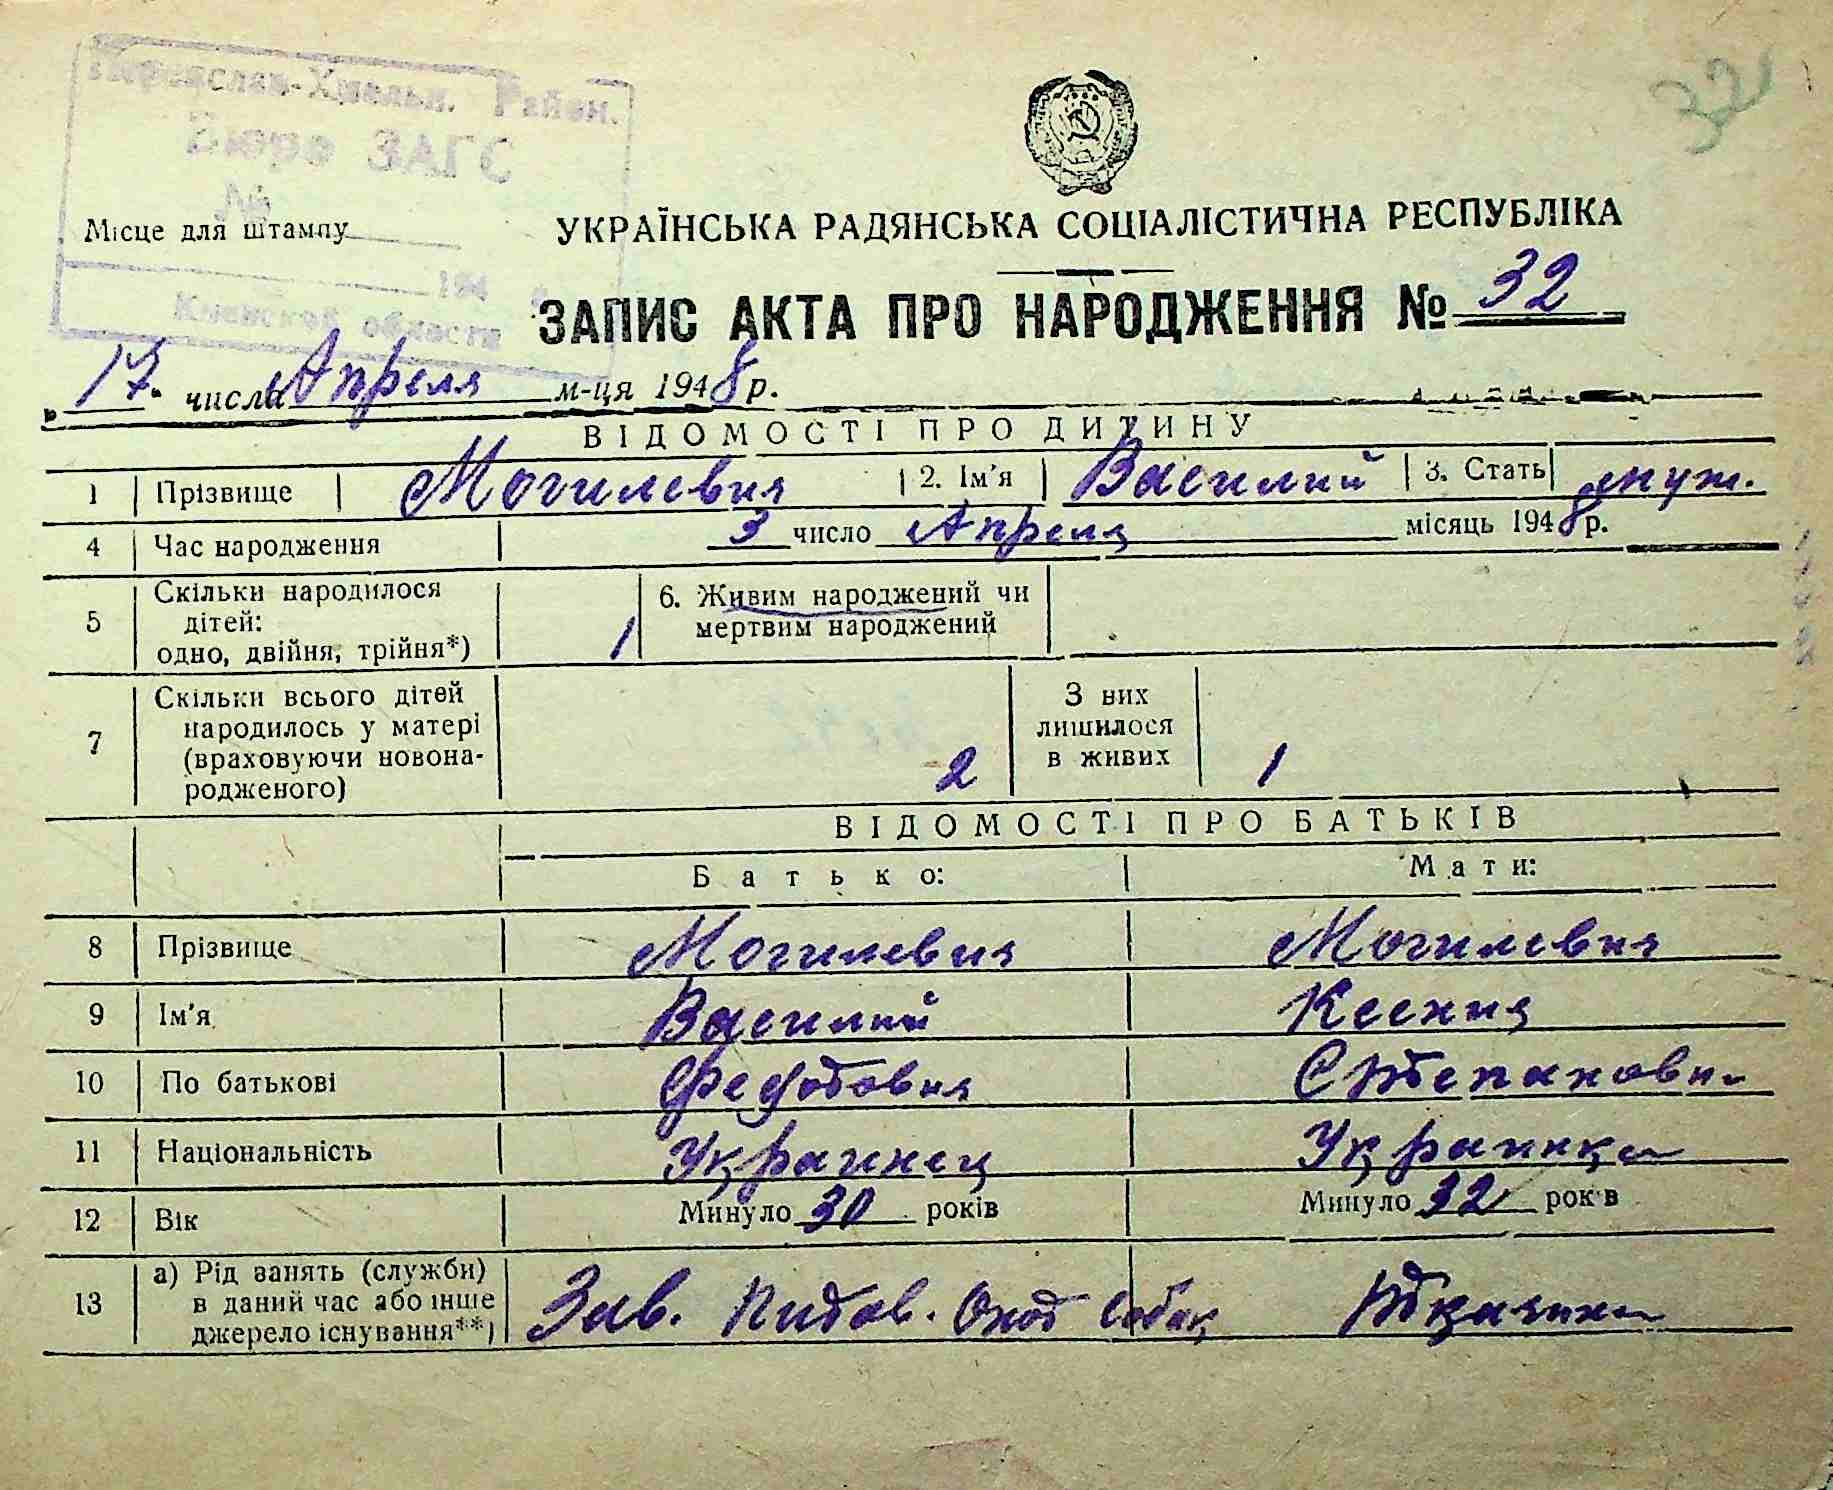 32
Переяслав-Хмельн. Район.
Бюро ЗАГС
№
Місце для штампу
194
Киевской области
УКРАЇНСЬКА РАДЯНСЬКА СОЦІАЛІСТИЧНА РЕСПУБЛІКА
ЗАПИС АКТА ПРО НАРОДЖЕННЯ № 32
17. числа Апреля м-ця 1948 р.
ВІДОМОСТІ ПРО ДИТИНУ
1 Прізвище Могилевич 2. Ім'я Василий 3. Стать муж.
4 Час народження 3 число Апреля місяць 1948 р.
5 Скільки народилося дітей: одно, двійня, трійня*) 1 6. Живим народжений чи мертвим народжений
7 Скільки всього дітей народилось у матері (враховуючи новонародженого) 2 З них лишилося в живих 1
ВІДОМОСТІ ПРО БАТЬКІВ
Батько: Мати:
8 Прізвище Могилевич Могилевич
9 Ім'я Василий Ксения
10 По батькові Федотович Степанов
11 Національність Украинец Украинка
12 Вік Минуло 30 років Минуло 32 рок в
13 а) Рід занять (служби) в даний час або інше джерело існування**) Зав. Питом. Собак Ткачиха